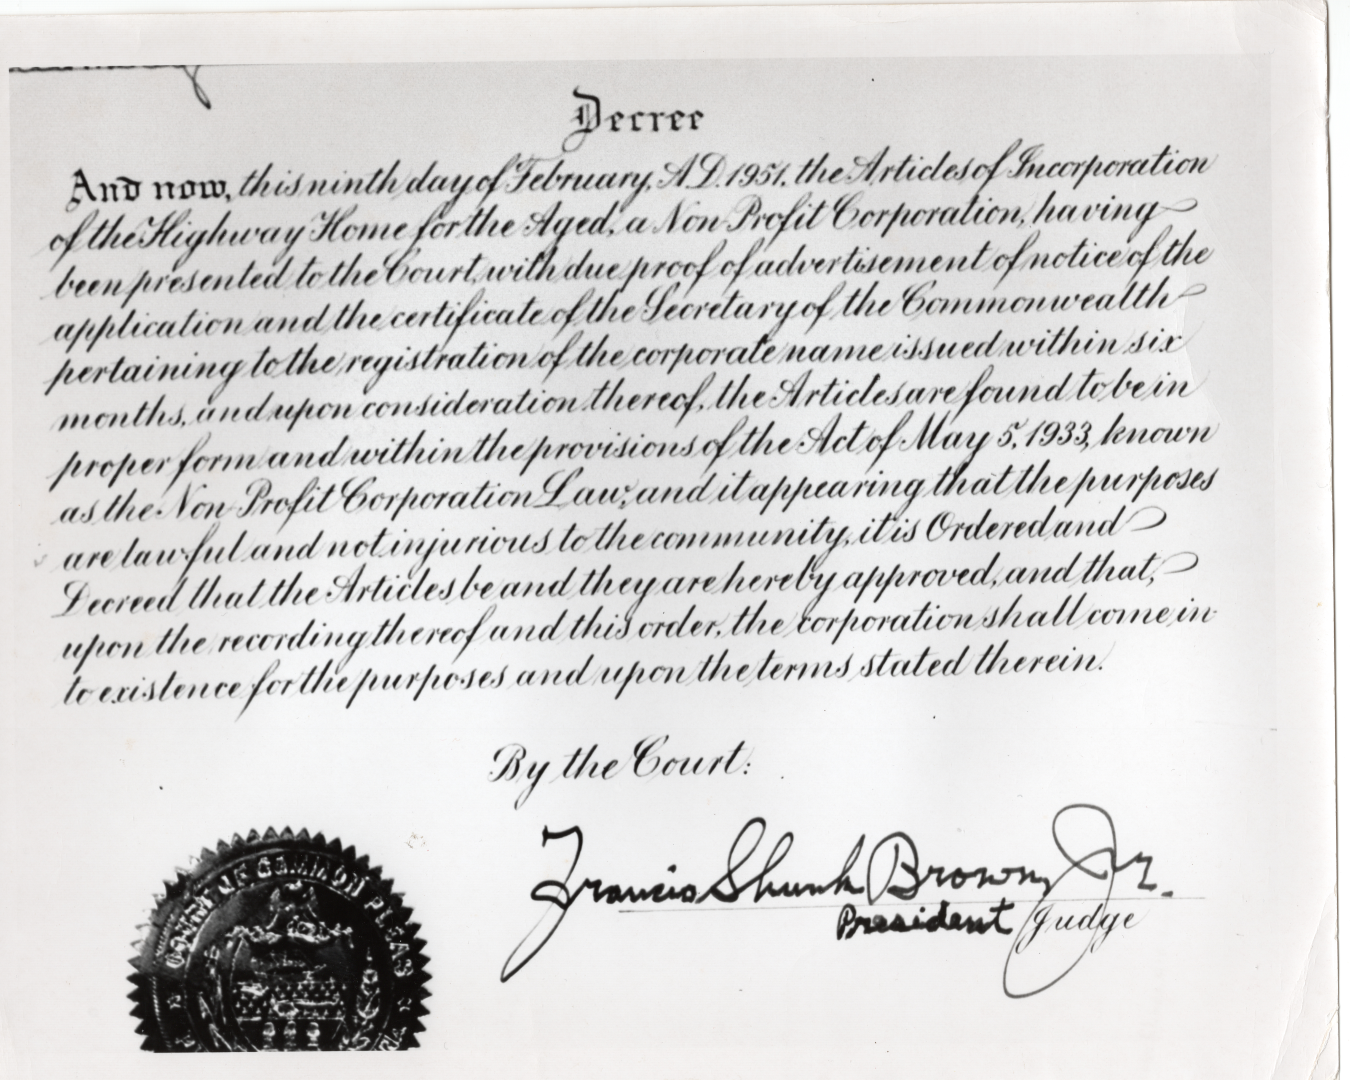 Decree
And now, this ninth day of February, A.D. 1951, the Articles of Incorporation
of the Highway Home for the Aged, a Non-Profit Corporation, having
been presented to the Court, with due proof of advertisement of notice of the
application and the certificate of the Secretary of the Commonwealth
pertaining to the registration of the corporate name issued within six
months, and upon consideration thereof, the Articles are found to be in
proper form and within the provisions of the Act of May 5, 1933, known
as the Non-Profit Corporation Law, and it appearing that the purposes
are lawful and not injurious to the community, it is Ordered and
Decreed that the Articles be and they are hereby approved, and that,
upon the recording thereof and this order, the corporation shall come in-
to existence for the purposes and upon the terms stated therein.
By the Court:
Francis Shunk Brown, Jr.
President Judge
COURT OF COMMON PLEAS